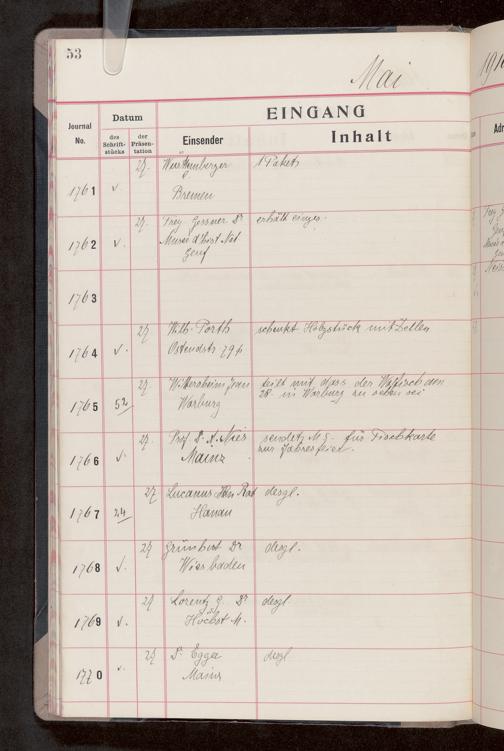 53
Mai
191
EINGANG
Journal No.
Datum
des Schrift-stücks
der Präsen-tation
Einsender
Inhalt
Adr
1761 27. 1 Paket
Bremen
1762 27. Frey-Gessner Dr erhält einges.
Musée d'hist. Nat.
Genf
1763
1764 27 Wilh. Porth schenkt Holzstück mit Zellen
Ostendstr 79 b
1765 27. teilt mit, dass der Walfisch den
Warburg 28. in Warburg zu sehen sei
1766 27. Prof. Dr. A. Nies sendet M 5.- für Tischkarte
Mainz zur Jahresfeier.
1767 24 27 Lucanus desgl.
Hanau
1768 27 Grünhut Dr desgl.
Wiesbaden
1769 27 Lorentz Dr desgl
Höchst M.
1770 27 Dr. Egger desgl
Mainz